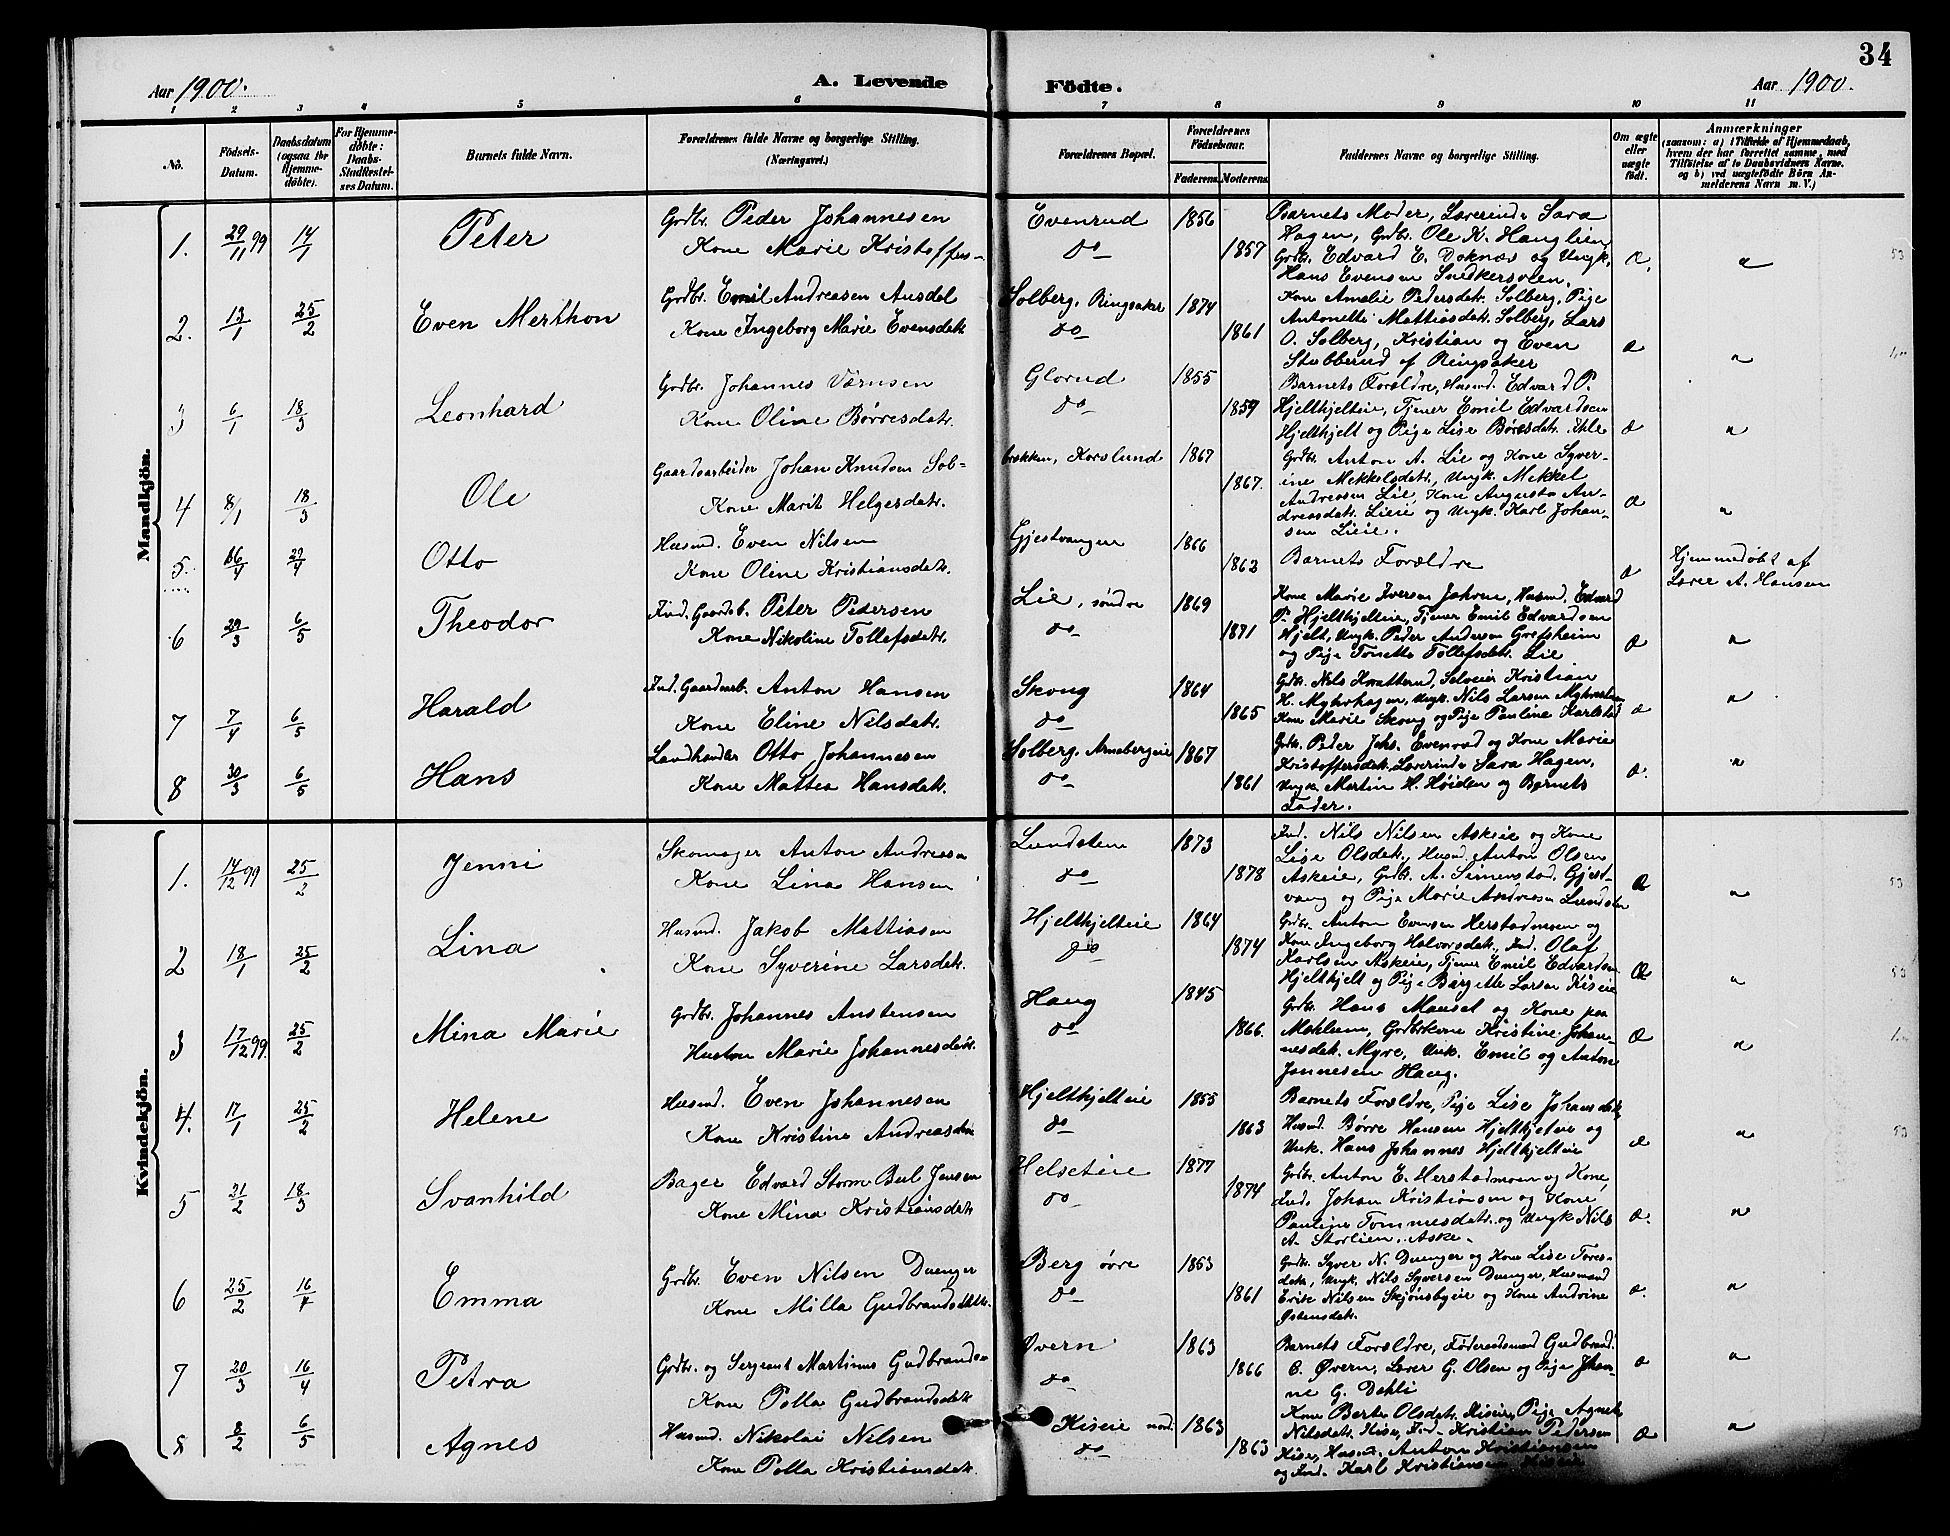 34
Aar 1900.
A. Levende
Födte.
Aar 1900.
1 2 3 4 5 6 7 8 9 10 11
No.
Födsels-
Datum.
Daabsdatum
(ogsaa for
Hjemme-
döbte).
For Hjemme-
döbte:
Daabs-
Stadfæstel-
ses Datum.
Barnets fulde Navn.
Forældrenes fulde Navne og borgerlige Stilling.
(Næringsvei.)
Forældrenes Bopæl.
Forældrenes
Födselsaar.
Faderens.
Moderens.
Faddernes Navne og borgerlige Stilling.
Om ægte
eller
uægte
födt.
Anmærkninger
(saasom: a) i Tilfælde af Hjemmedaab,
hvem der har forrettet samme, med
Tilföielse af to Daabsvidners Navne.
og b) ved uægtefödte Börn An-
melderens Navn m. V.)
Mandkjön.
1. 29/11 99 14/1 Peter
Grdbr. Peder Johannesen
Kone Marie Kristoffers-
Evenrud 1856
do 1857
Barnets Moder, Lærerinde Sara
Hagen, Grdbr. Ole K. Hauglien
Grdbr. Edvard E. Doknæs og Ungk.
Hans Evensen Snekkersveen,
æ.
2. 13/1 25/2 Even Merthon
Grdbr. Emil Andreasen Ausdal
Kone Ingeborg Marie Evensdatr.
Solberg, Ringsaker 1874
do 1861
Kone Amelie Pedersdatr. Solberg, Pige
Antonette Mattiasdatr. Solberg, Lars
O. Solberg, Kristian og Even
Stubberud af Ringsaker
æ
3 6/1 18/3 Leonhard
Grdbr. Johannes Värnsen
Kone Oline Børresdatr.
Glorud 1855
do 1859
Barnets Forældre, Husmd. Edvard P.
Hjelthjelteie, Tjener Emil Edvardsen
Hjelthjelt og Pige Lise Børesdatr. Ihle
æ
4 8/1 18/3 Ole
Gaardsarbeider Johan Knudsen Sol-
Kone Marit Helgesdatr.
brækken, Korslund 1867
1867.
Grdbr. Anton A. Lie og Kone Syver-
ine Mekkelsdatr., Ungk. Mekkel
Andreassen Lie, Kone Augusta An-
dreasdatr. Lieie og Ungk. Karl Johan-
sen Lieie.
æ
5. 26/4 29/4 Otto
Husmd. Even Nilsen
Kone Oline Kristiansdatr.
Gjestvangeie 1866
1862
Barnets Forældre
æ
Hjemmedøbt af
Lærer A. Hansen
6 29/3 6/5 Theodor
Ind. Gaardsb. Peter Pedersen
Kone Nikoline Tollefsdatr.
Lie, søndre 1869
do 1871
Kone Marie Iversen Johrne, Husmd. Edvard
P. Hjelthjelteie, Tjener Emil Edvardsen
Hjelt, Ungk. Peder Andersen Grefsheim
og Pige Tonette Tollefsdatr. Lie
æ
7 7/4 6/5 Harald
Ind. Gaardsarb. Anton Hansen
Kone Eline Nilsdatr.
Skoug 1864
do 1865
Grdbr. Nils Knatterud, Selveier Kristian
H. Myhrhagen, Ungk. Nils Larsen
Kone Marie Skoug og Pige Pauline Karlstad
æ
8 30/3 6/5 Hans
Landhandler Otto Johannesen
Kone Mattea Hansdatr.
Solberg, Arnebergeie 1867
do 1861
Grdbr. Peder Johs. Evenrud og Kone Marie
Kristoffersdatr. Lærerinde Sara Hagen,
Ungk. Martin H. Høiden og Barnets
Fader.
æ.
Kvindekjön.
1. 14/12 99 25/2 Jenni
Skomager Anton Andreasen
Kone Lina Hansen
Lundsteen 1873
do 1878
Ind. Nils Nilsen Askeie og Kone
Lise Olsdatr., Husmd. Anton Olsen
Askeie, Grdbr. A. Simenstad, Gjest-
vang og Pige Marie Andreasen Lundsten
æ
2 18/1 25/2 Lina
Husmd. Jakob Mattiasen
Kone Syverine Larsdatr.
Hjelthjelteie 1864
do 1874
Grdbr. Anton Evensen Herstadmoen og
Kone Ingeborg Halvorsdatr., Ind. Olaf
Karlsen Askeie, Tjener Emil Edvardsen
Hjelthjelt og Pige Birgitte Larsen Kiseie
æ
3 17/12 99. 25/2 Mina Marie
Grdbr. Johannes Anstensen
Hustru Marie Johannesdatr.
Haug 1845
do 1866.
Grdbr. Hans Maurset og Kone paa
Mæhlum, Grdbrkone Kristine Johan-
nesdatr. Myre, Unk. Emil og Anton
Jonnesen Haug.
æ
4. 17/1 25/2 Helene
Husmd. Even Johannesen
Kone Kristine Andreasdatr.
Hjelthjelteie 1855
do 1863
Barnets Forældre, Pige Lise Johansdatr.
Husmd. Børre Hansen Hjelthjelteie og
Unk. Hans Johannes Hjelthjelteie
æ
5 21/2 18/3 Svanhild
Bager Edvard Storm Bul Jensen
Kone Mina Kristiansdatr.
Helseteie 1877
do 1874
Grdbr. Anton E. Herstadmoen og Kone,
Ind. Johan Kristiansen og Kone
Pauline Tommesdatr. og Ungk Nils
A. Storlien, Aske.
æ.
6 25/2 16/4 Emma
Grdbr. Even Nilsen Duenger
Kone Milla Gudbrandsdatr.
Berg øvre 1853
do 1861
Grdbr. Syver N. Duenger og Kone Lise Tores-
datr, Ungk. Nils Syversen Duenger, Husmand
Erik Nilsen Skjønsbyeie og Kone Andrine
Østensdatr.
æ.
7 20/3 16/4 Petra
Grdbr. og Sergeant Martinus Gudbrandsen
Kone Polla Gudbrandsdatr.
Øvern 1863
do 1866
Barnets Forældre, Føderaadsmand Gudbrand
C. Øvern, Lærer G. Olsen og Pige Johan-
ne G. Dæhli
æ
8 8/2 6/5 Agnes
Husmd. Nikolai Nilsen
Kone Polla Kristiansdatr.
Kiseie nord. 1863
do 1863
Kone Berte Olsdatr. Kiseie, Pige Agnete
Nilsdatr. Kise, Ind. Kristian Pedersen
Kise, Husmd. Anton Kristiansen
og Ind. Karl Kristiansen
æ